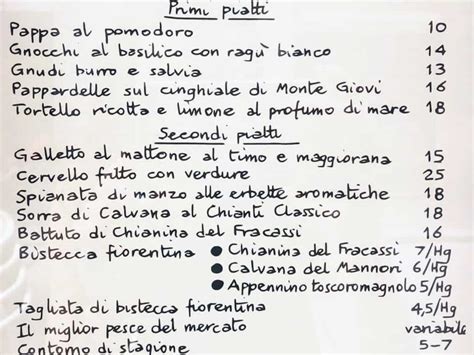 Primi piatti
Pappa al pomodoro 10
Gnocchi al basilico con ragù bianco 14
Gnudi burro e salvia 13
Pappardelle sul cinghiale di Monte Giovi 16
Tortello ricotta e limone al profumo di mare 18
Secondi piatti
Galletto al mattone al timo e maggiorana 15
Cervello fritto con verdure 25
Spianata di manzo alle erbette aromatiche 18
Sorra di Calvana al Chianti Classico 18
Battuto di Chianina del Fracassi 16
Bistecca fiorentina • Chianina del Fracassi 7/Hg
• Calvana del Mannori 6/Hg
• Appennino toscoromagnolo 5/Hg
Tagliata di bistecca fiorentina 4,5/Hg
Il miglior pesce del mercato variabile
Contorno di stagione 5-7